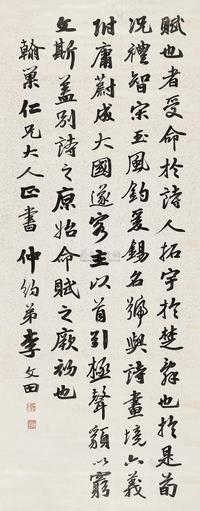 賦也者受命於詩人拓宇於楚辭也於是荀
況禮智宋玉風釣爰錫名號與詩畫境六義
附庸蔚成大國遂客主以首引極聲貌以窮
文斯蓋別詩之原始命賦之厥初也
翰巢仁兄大人正書 仲約弟李文田